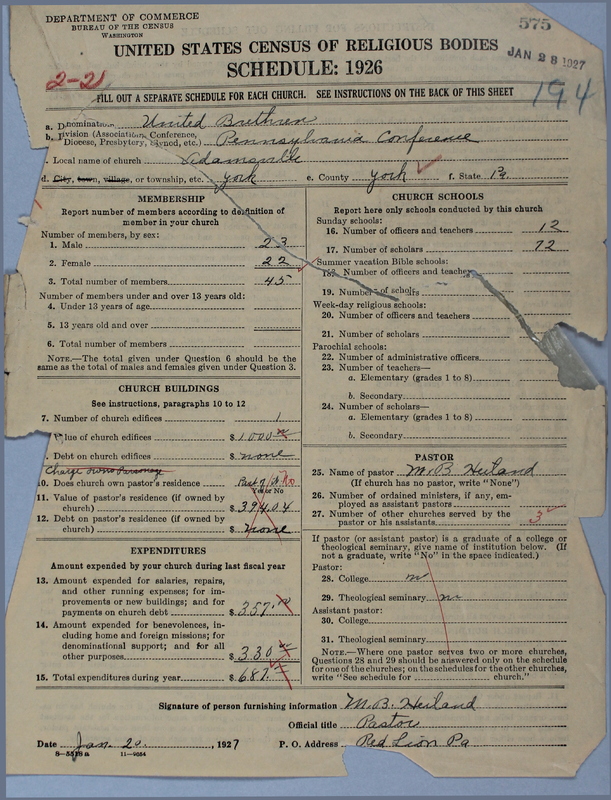 DEPARTMENT OF COMMERCE
BUREAU OF THE CENSUS
WASHINGTON
575
UNITED STATES CENSUS OF RELIGIOUS BODIES
JAN 28 1927
SCHEDULE: 1926
2-21
194
FILL OUT A SEPARATE SCHEDULE FOR EACH CHURCH. SEE INSTRUCTIONS ON THE BACK OF THIS SHEET
a. Denomination United Brethren
b. Division (Association, Conference,
Diocese, Presbytery, Synod, etc.) Pennsylvania Conference
. Local name of church
d. City, town, village, or township, etc. York e. County York f. State Pa.
MEMBERSHIP
Report number of members according to definition of
member in your church
Number of members, by sex:
1. Male 23
2. Female 22
3. Total number of members 45
Number of members under and over 13 years old:
4. Under 13 years of age
5. 13 years old and over
6. Total number of members
NOTE.—The total given under Question 6 should be
the same as the total of males and females given under Question 3.
CHURCH BUILDINGS
See instructions, paragraphs 10 to 12
7. Number of church edifices 1
Value of church edifices $ 1000
. Debt on church edifices $ none
Charge owns Parsonage
10. Does church own pastor's residence Part of it No
Yes or No
11. Value of pastor's residence (if owned by
church) $ 394.04
12. Debt on pastor's residence (if owned by
church) $ none
EXPENDITURES
Amount expended by your church during last fiscal year
13. Amount expended for salaries, repairs,
and other running expenses; for im-
provements or new buildings; and for
payments on church debt $ 357.
14. Amount expended for benevolences, in-
cluding home and foreign missions; for
denominational support; and for all
other purposes $ 330
15. Total expenditures during year $ 687.
CHURCH SCHOOLS
Report here only schools conducted by this church
Sunday schools:
16. Number of officers and teachers 12
17. Number of scholars 72
Summer vacation Bible schools:
18. Number of officers and teachers
19. Number of scholars
Week-day religious schools:
20. Number of officers and teachers
21. Number of scholars
Parochial schools:
22. Number of administrative officers
23. Number of teachers—
a. Elementary (grades 1 to 8)
b. Secondary
24. Number of scholars—
a. Elementary (grades 1 to 8)
b. Secondary
PASTOR
25. Name of pastor M. B. Heiland
(If church has no pastor, write "None")
26. Number of ordained ministers, if any, em-
ployed as assistant pastors
27. Number of other churches served by the
pastor or his assistants 3
If pastor (or assistant pastor) is a graduate of a college or
theological seminary, give name of institution below. (If
not a graduate, write "No" in the space indicated.)
Pastor:
28. College no
29. Theological seminary no
Assistant pastor:
30. College
31. Theological seminary
NOTE.—Where one pastor serves two or more churches,
Questions 28 and 29 should be answered only on the schedule
for one of the churches; on the schedules for the other churches,
write "See schedule for church."
Signature of person furnishing information M. B. Heiland
Official title Pastor
Date Jan. 20, 1927 P. O. Address Red Lion Pa
8—5518a 11—9664